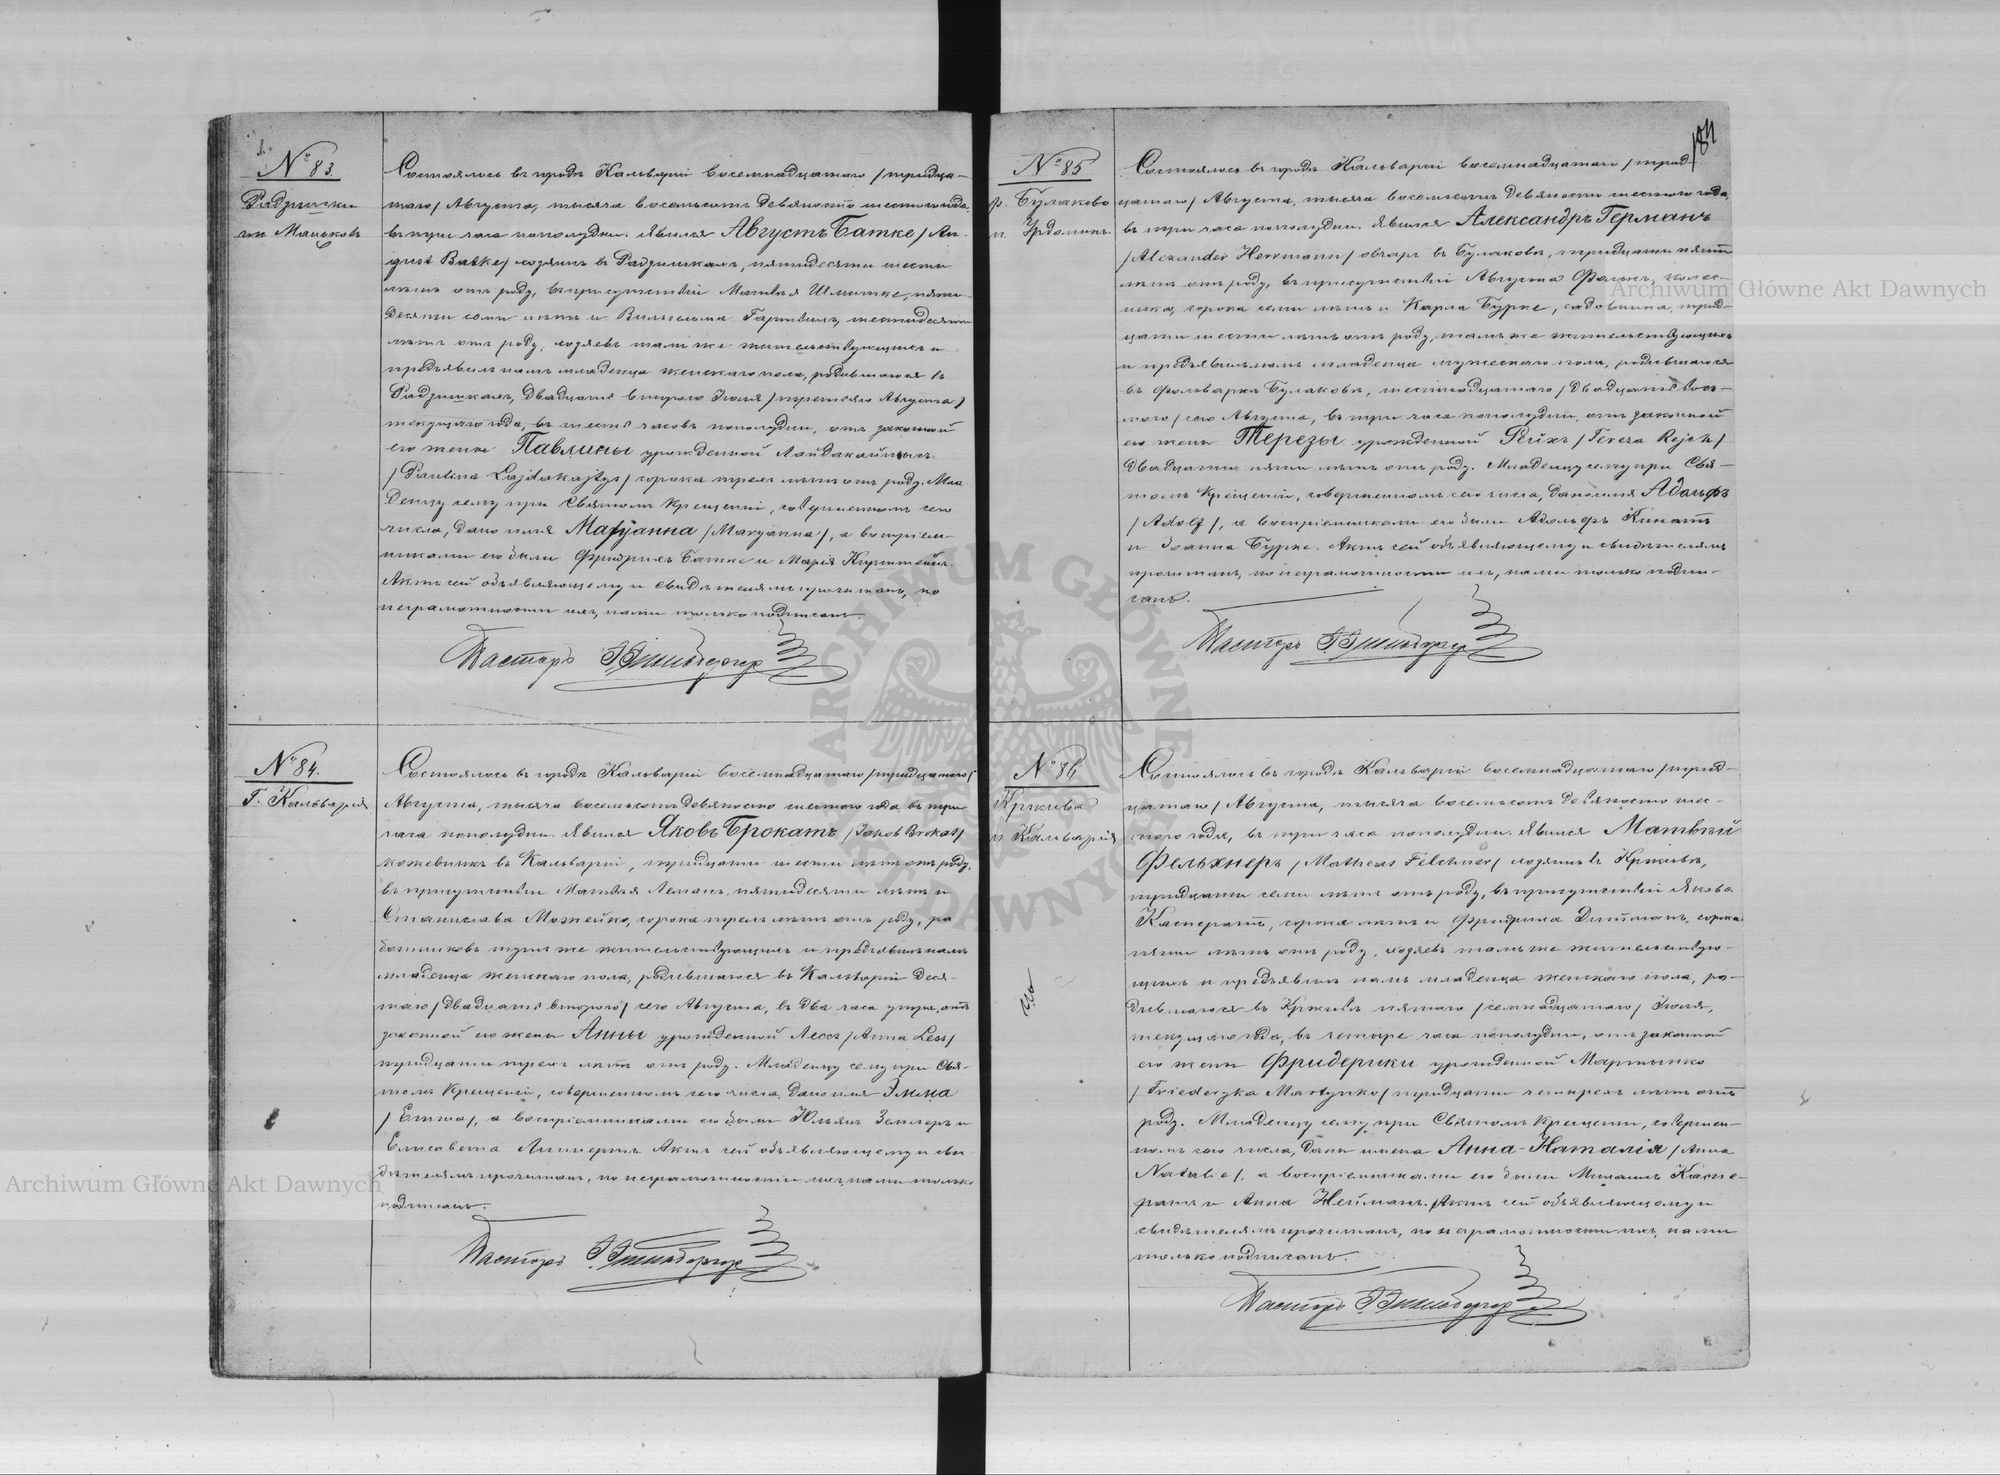 № 83.
Радзишки
гм. Маньково
Состоялось въ городѣ Кальваріи восемнадцатаго /тридца-
таго/ Августа, тысяча восемьсотъ девяносто шестого года,
въ три часа пополудни. Явился Августъ Батке /Au-
gust Batke/ хозяинъ въ Радзишкахъ, пятидесяти шести
лѣтъ отъ роду, въ присутствіи Матвѣя Шмитке, пяти-
десяти семи лѣтъ и Вильгельма Гартвихъ, шестидесяти
лѣтъ отъ роду, хозяевъ тамъ же жительствующихъ и
предъявилъ намъ младенца женскаго пола, родившагося въ
Радзишкахъ, двадцать второго Іюля /третьяго Августа/
текущаго года, въ шесть часовъ пополудни, отъ законной
его жены Павлины урожденной Лайдакайтысъ
/Paulina Lajdakajtys/ сорока трехъ лѣтъ отъ роду. Мла-
денцу сему при Святомъ Крещеніи, совершенномъ сего
числа, дано имя Марyанна /Maryanna/, а воспріем-
никами его были Фридрихъ Батке и Марія
Актъ сей объявляющему и свидѣтелямъ прочитанъ, по
неграмотности ихъ, нами только подписанъ.
Пасторъ
№ 84.
Г. Кальварія
Состоялось въ городѣ Кальваріи восемнадцатаго /тридцатаго/
Августа, тысяча восемьсотъ девяносто шестого года, въ три
часа пополудни. Явился Яковъ Брокатъ /Jakob Brokat/
кожевникъ въ Кальваріи, тридцати шести лѣтъ отъ роду,
въ присутствіи Матвѣя Леманъ, пятидесяти лѣтъ и
Станислава Можейко, сорока трехъ лѣтъ отъ роду, ра-
ботниковъ тутъ же жительствующихъ и предъявилъ намъ
младенца женскаго пола, родившагося въ Кальваріи деся-
таго /двадцать второго/ сего Августа, въ два часа утра, отъ
законной его жены Анны урожденной Лессъ /Anna Less/
тридцати трехъ лѣтъ отъ роду. Младенцу сему при Свя-
томъ Крещеніи, совершенномъ сего числа, дано имя Эмма
/Emma/, а воспріемниками его были Юльянъ и
Елисавета Актъ сей объявляющему и сви-
дѣтелямъ прочитанъ, по неграмотности ихъ, нами только
подписанъ.
Пасторъ
184
№ 85
ф. Булаково
Состоялось въ городѣ Кальваріи восемнадцатаго /трид-
цатаго/ Августа, тысяча восемьсотъ девяносто шестого года,
въ три часа пополудни. Явился Александръ Германъ
/Alexander Herrmann/ овчаръ въ Булаковѣ, тридцати пяти
лѣтъ отъ роду, въ присутствіи Августа колес-
ника, сорока семи лѣтъ и Карла Бурке, садовника, трид-
цати шести лѣтъ отъ роду, тамъ же жительствующихъ
и предъявилъ намъ младенца мужескаго пола, родившагося
въ фольваркѣ Булаковѣ, шестнадцатаго /двадцать вось-
мого/ сего Августа, въ три часа пополудни, отъ законной
его жены Терезы урожденной Рейхъ /Tereza Rejch/
двадцати пяти лѣтъ отъ роду. Младенцу сему при Свя-
томъ Крещеніи, совершенномъ сего числа, дано имя Адольфъ
/Adolf/, а воспріемниками его были Адольфъ
и Іоанна Бурке. Актъ сей объявляющему и свидѣтелямъ
прочитанъ, по неграмотности ихъ, нами только подпи-
санъ.
Пасторъ
№ 86
Кржива
г. Кальварія
Состоялось въ городѣ Кальваріи восемнадцатаго /трид-
цатаго/ Августа, тысяча восемьсотъ девяносто шес-
того года, въ три часа пополудни. Явился Матвѣй
Фельхнеръ /Matheas Felchner/ хозяинъ въ Крживѣ,
тридцати семи лѣтъ отъ роду, въ присутствіи Якова
Касператъ, сорока лѣтъ и Фридриха Дитманъ, сорока
пяти лѣтъ отъ роду, хозяевъ тамъ же жительствую-
щихъ и предъявилъ намъ младенца женскаго пола, ро-
дившагося въ Крживѣ пятаго /семнадцатаго/ Іюля,
текущаго года, въ четыре часа пополудни, отъ законной
его жены Фридерики урожденной Мартынко
/Friederyka Martynko/ тридцати четырехъ лѣтъ отъ
роду. Младенцу сему при Святомъ Крещеніи, совершен-
номъ сего числа, даны имена Анна-Наталія /Anna
Natalie/, а воспріемниками его были Михаилъ Каспе-
ратъ и Анна Нейманъ. Актъ сей объявляющему и
свидѣтелямъ прочитанъ, по неграмотности ихъ, нами
только подписанъ.
Пасторъ
Archiwum Główne Akt Dawnych
Archiwum Główne Akt Dawnych
ARCHIWUM GŁÓWNE AKT DAWNYCH